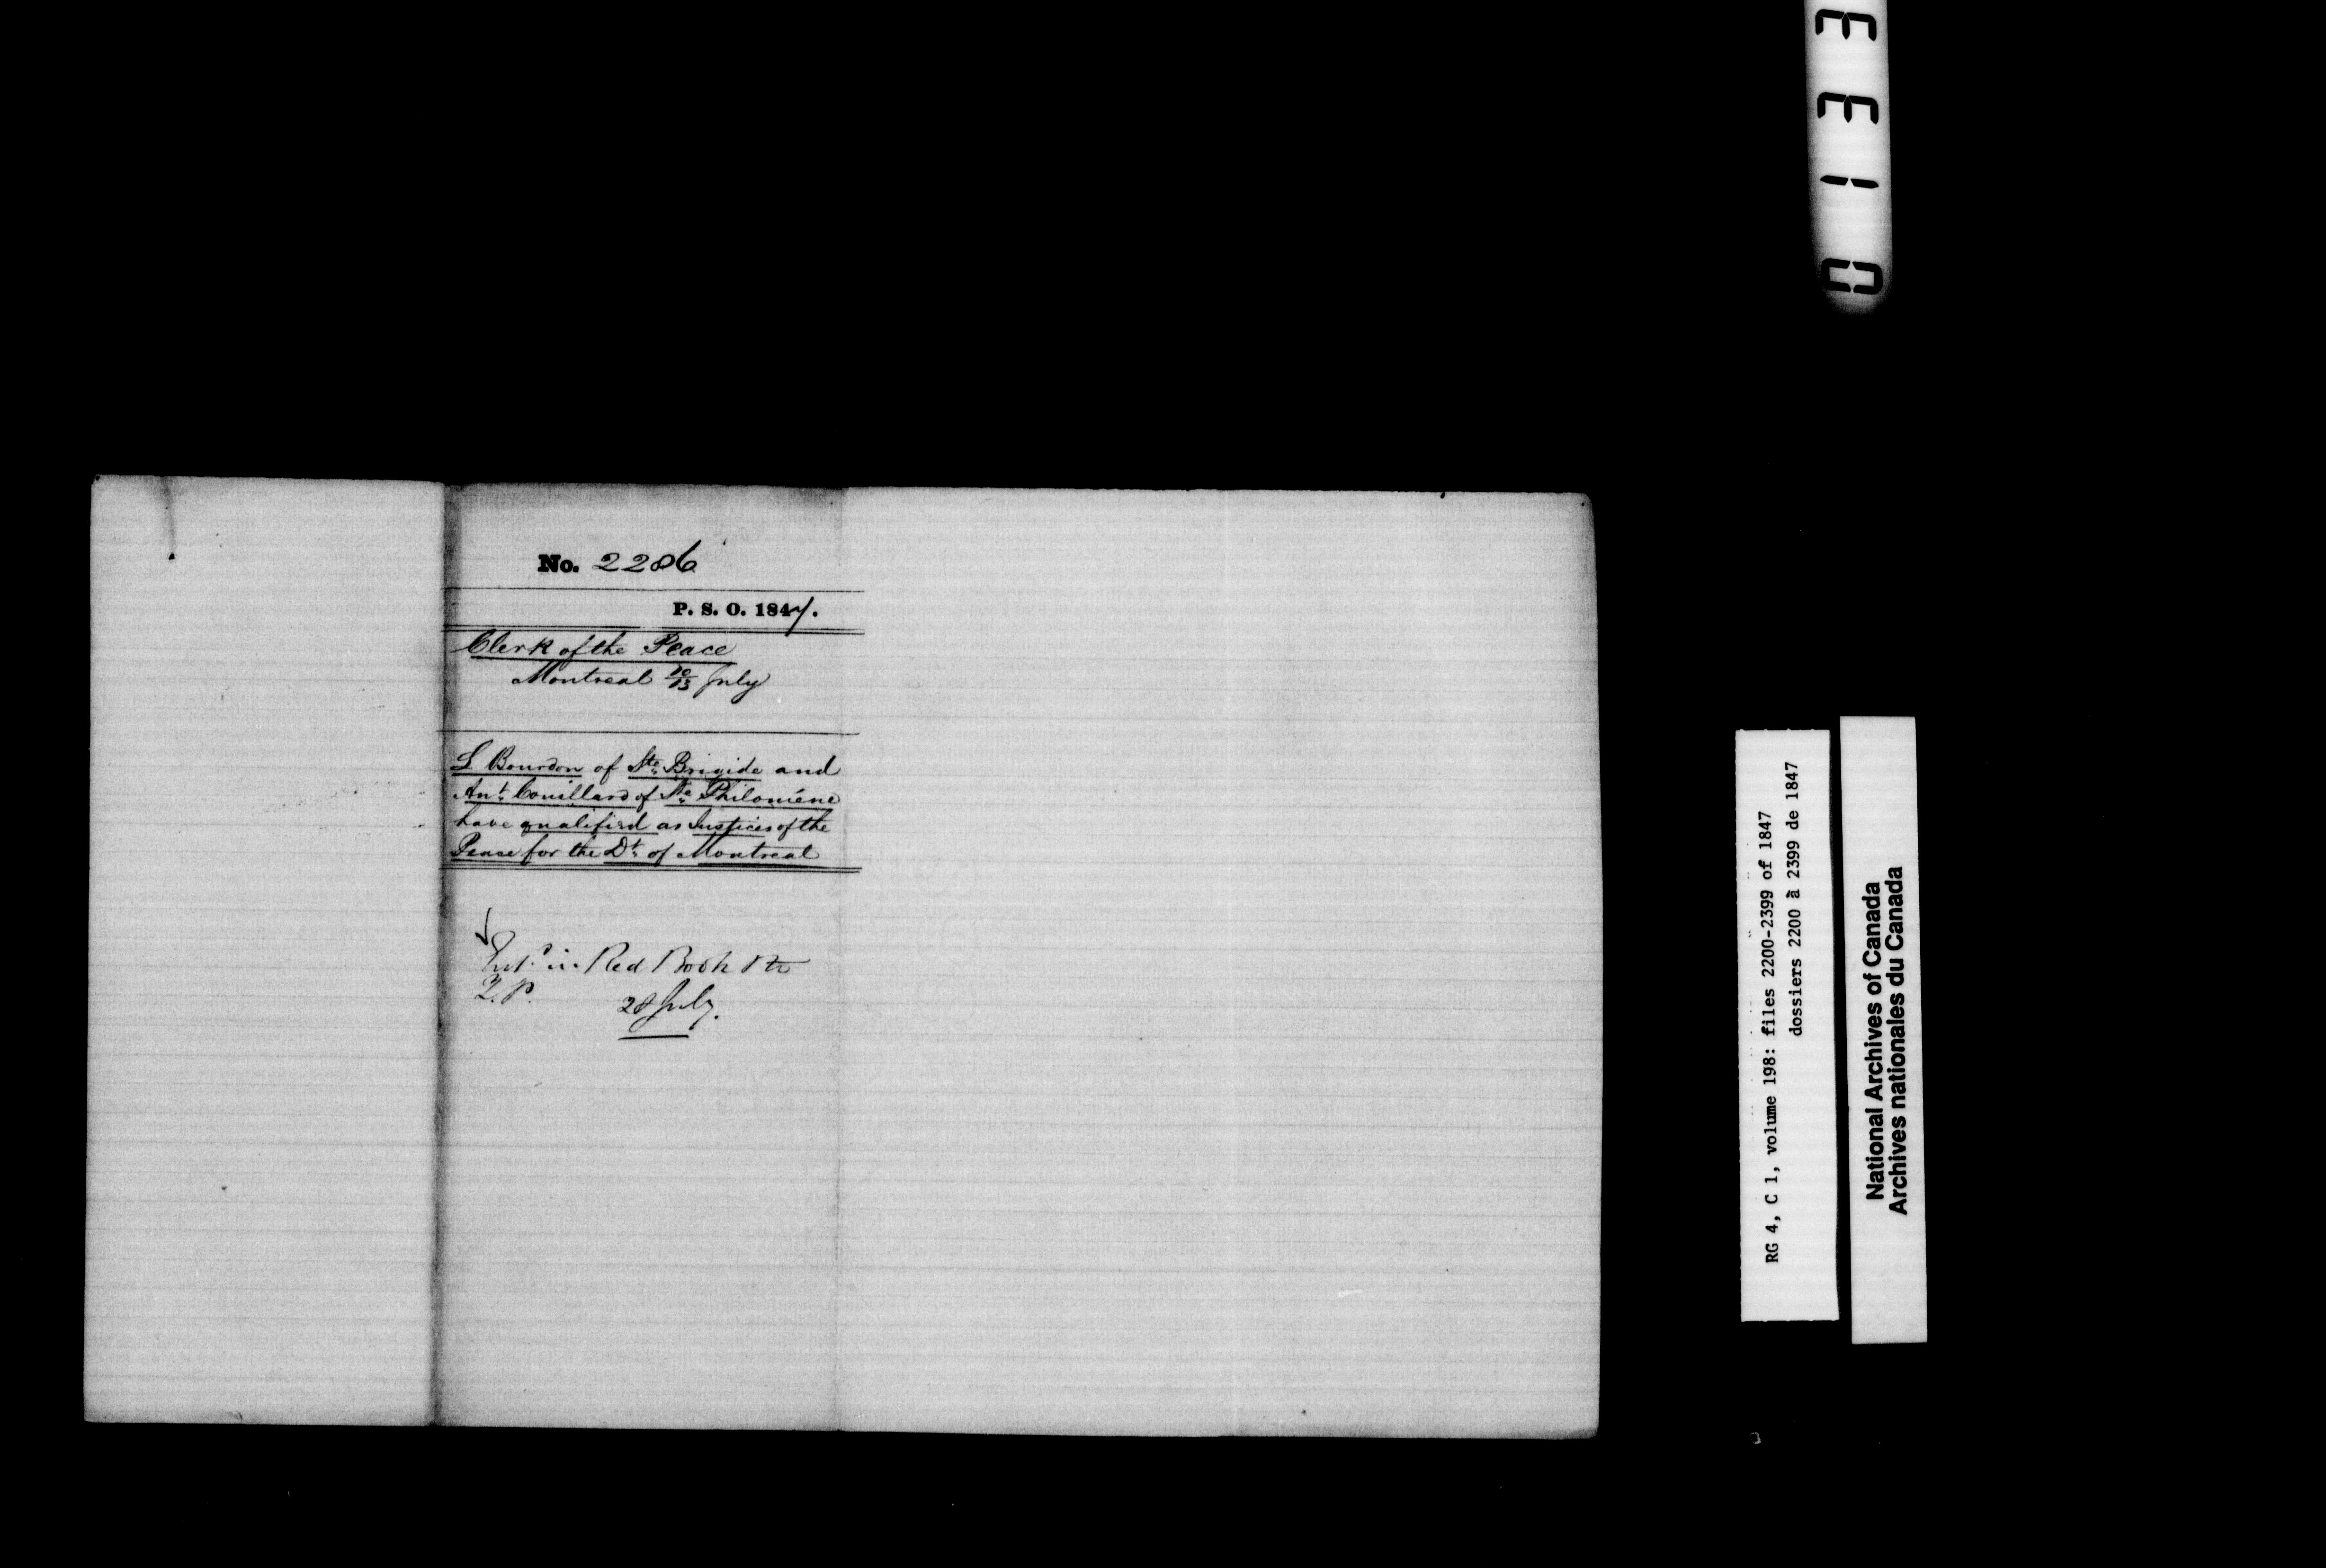 No. 2286
P. S. O. 1847.
Clerk of the Peace
Montreal 10/13 July
L Bourdon of Ste. Brigide and
Ant. Couillard of Ste. Philoméne
have qualified as Justices of the
Peace for the Dt. of Montreal
in Red Book
28 July.
RG 4, C 1, volume 198: files 2200-2399 of 1847
dossiers 2200 à 2399 de 1847
National Archives of Canada
Archives nationales du Canada
0133